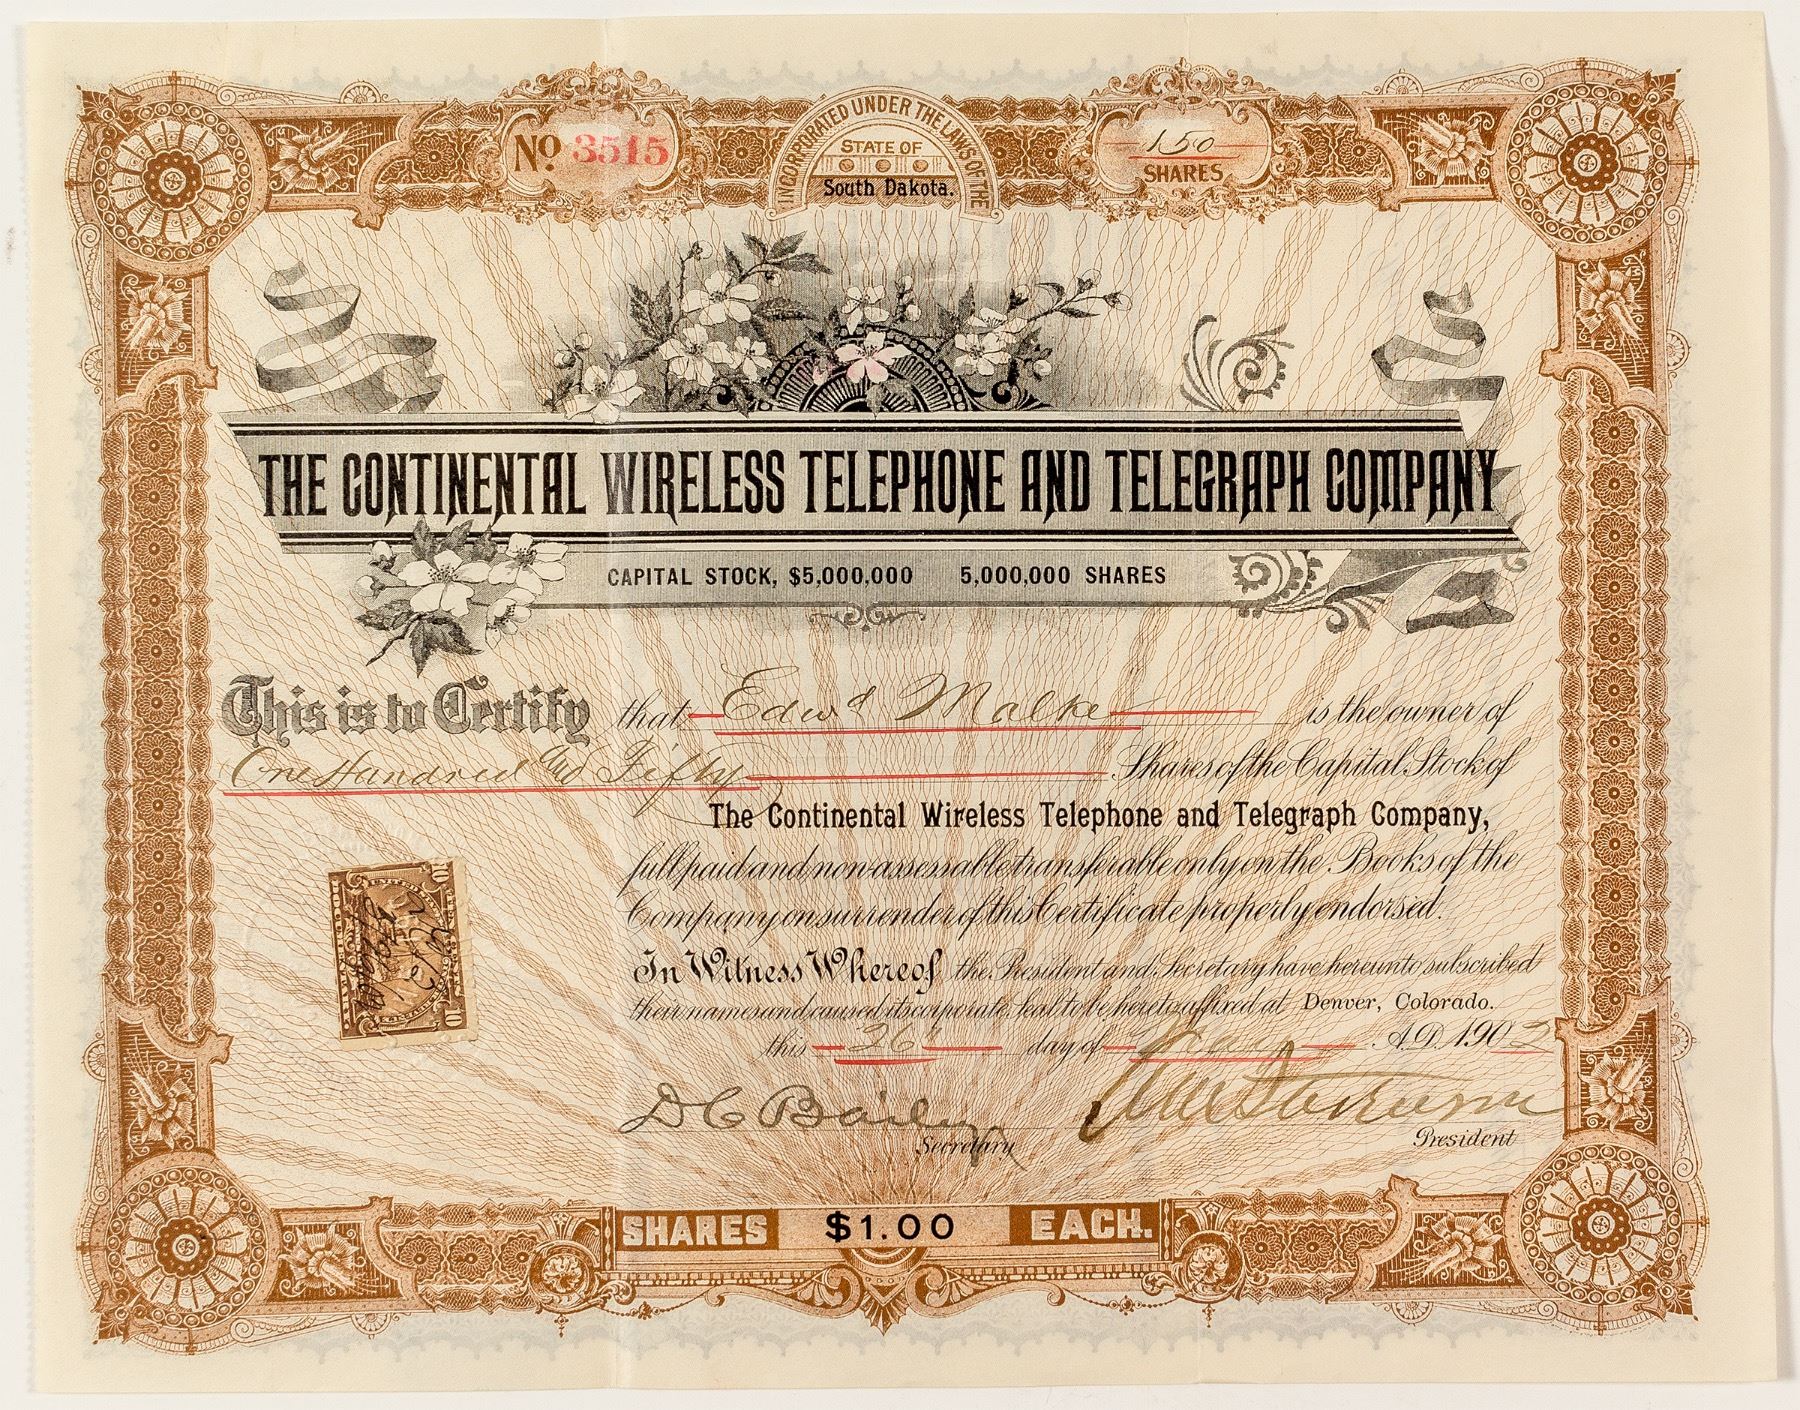 No. 3515
INCORPORATED UNDER THE LAWS OF THE
STATE OF
South Dakota.
150
SHARES
THE CONTINENTAL WIRELESS TELEPHONE AND TELEGRAPH COMPANY
CAPITAL STOCK, $5,000,000 5,000,000 SHARES
This is to Certify that Edwd is the owner of
One Hundred and Fifty Shares of the Capital Stock of
The Continental Wireless Telephone and Telegraph Company,
full paid and non-assessable transferable only on the Books of the
Company on surrender of this Certificate properly endorsed.
In Witness Whereof the President and Secretary have hereunto subscribed
their names and caused its corporate Seal to be hereto affixed at Denver, Colorado.
this 26 day of A.D. 1902
D C Bailey
Secretary
President
SHARES $1.00 EACH.